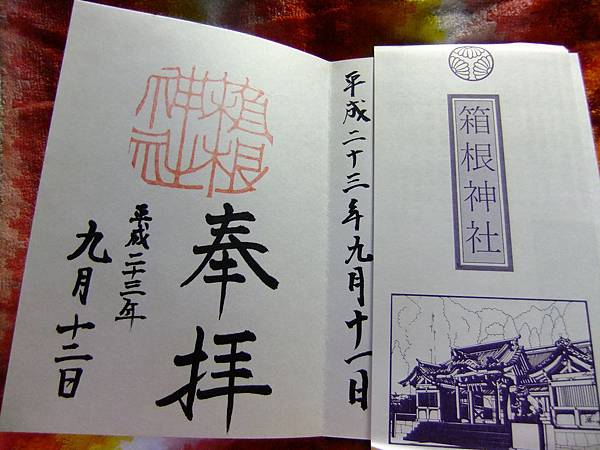 箱根神社
平成二十三年九月十一日
箱根
神社
奉拝
平成二十三年
九月十二日